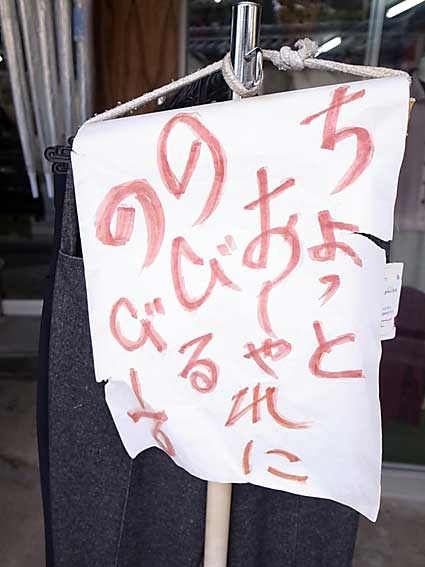 ちょっと
おしゃれに
のびる
のびる